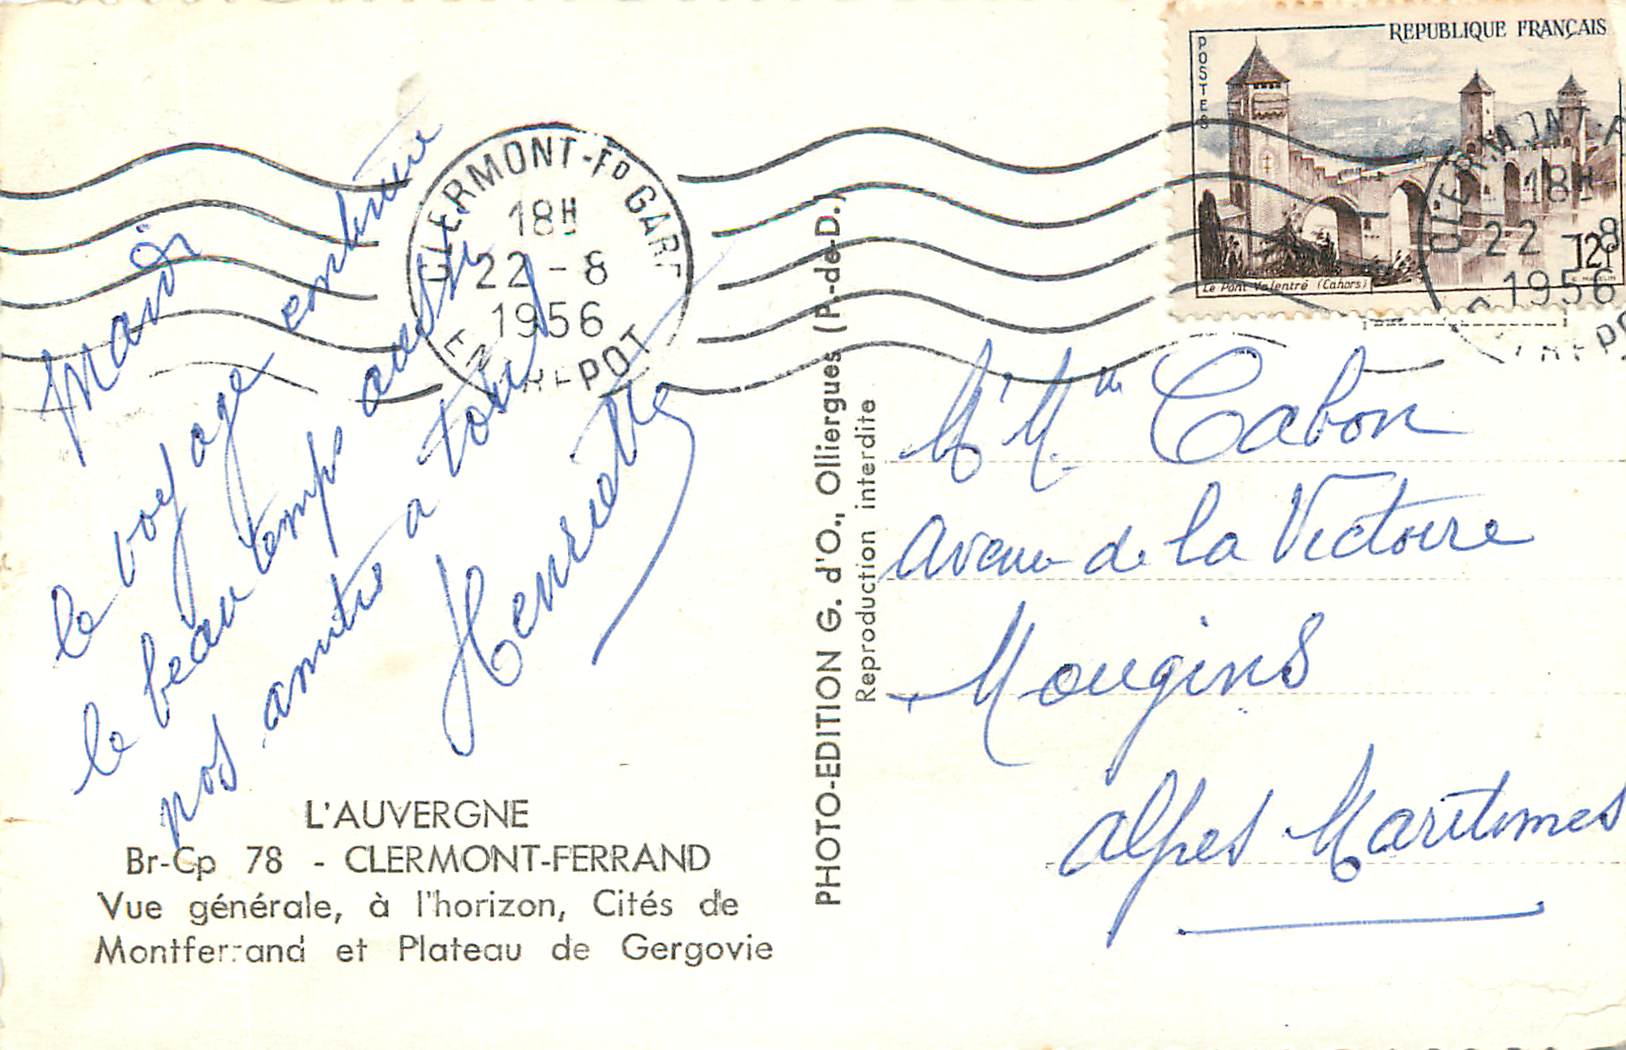 mardi
le voyage continue
le beau temps aussi
nos amitiés a tous
Henriette
L'AUVERGNE
Br-Cp 78 - CLERMONT-FERRAND
Vue générale, à l'horizon, Cités de
Montferrand et Plateau de Gergovie
PHOTO-EDITION G. d'O., Olliergues (P.-de-D.)
Reproduction interdite
CLERMONT-Fd GARE
18H
22-8
1956
ENTREPOT
REPUBLIQUE FRANÇAIS
POSTES
12f
Le Pont Valentré (Cahors)
CLERMONT-F
18H
22 - 8
1956
M. Mme Cabon
avenue de la Victoire
Mougins
Alpes Maritimes